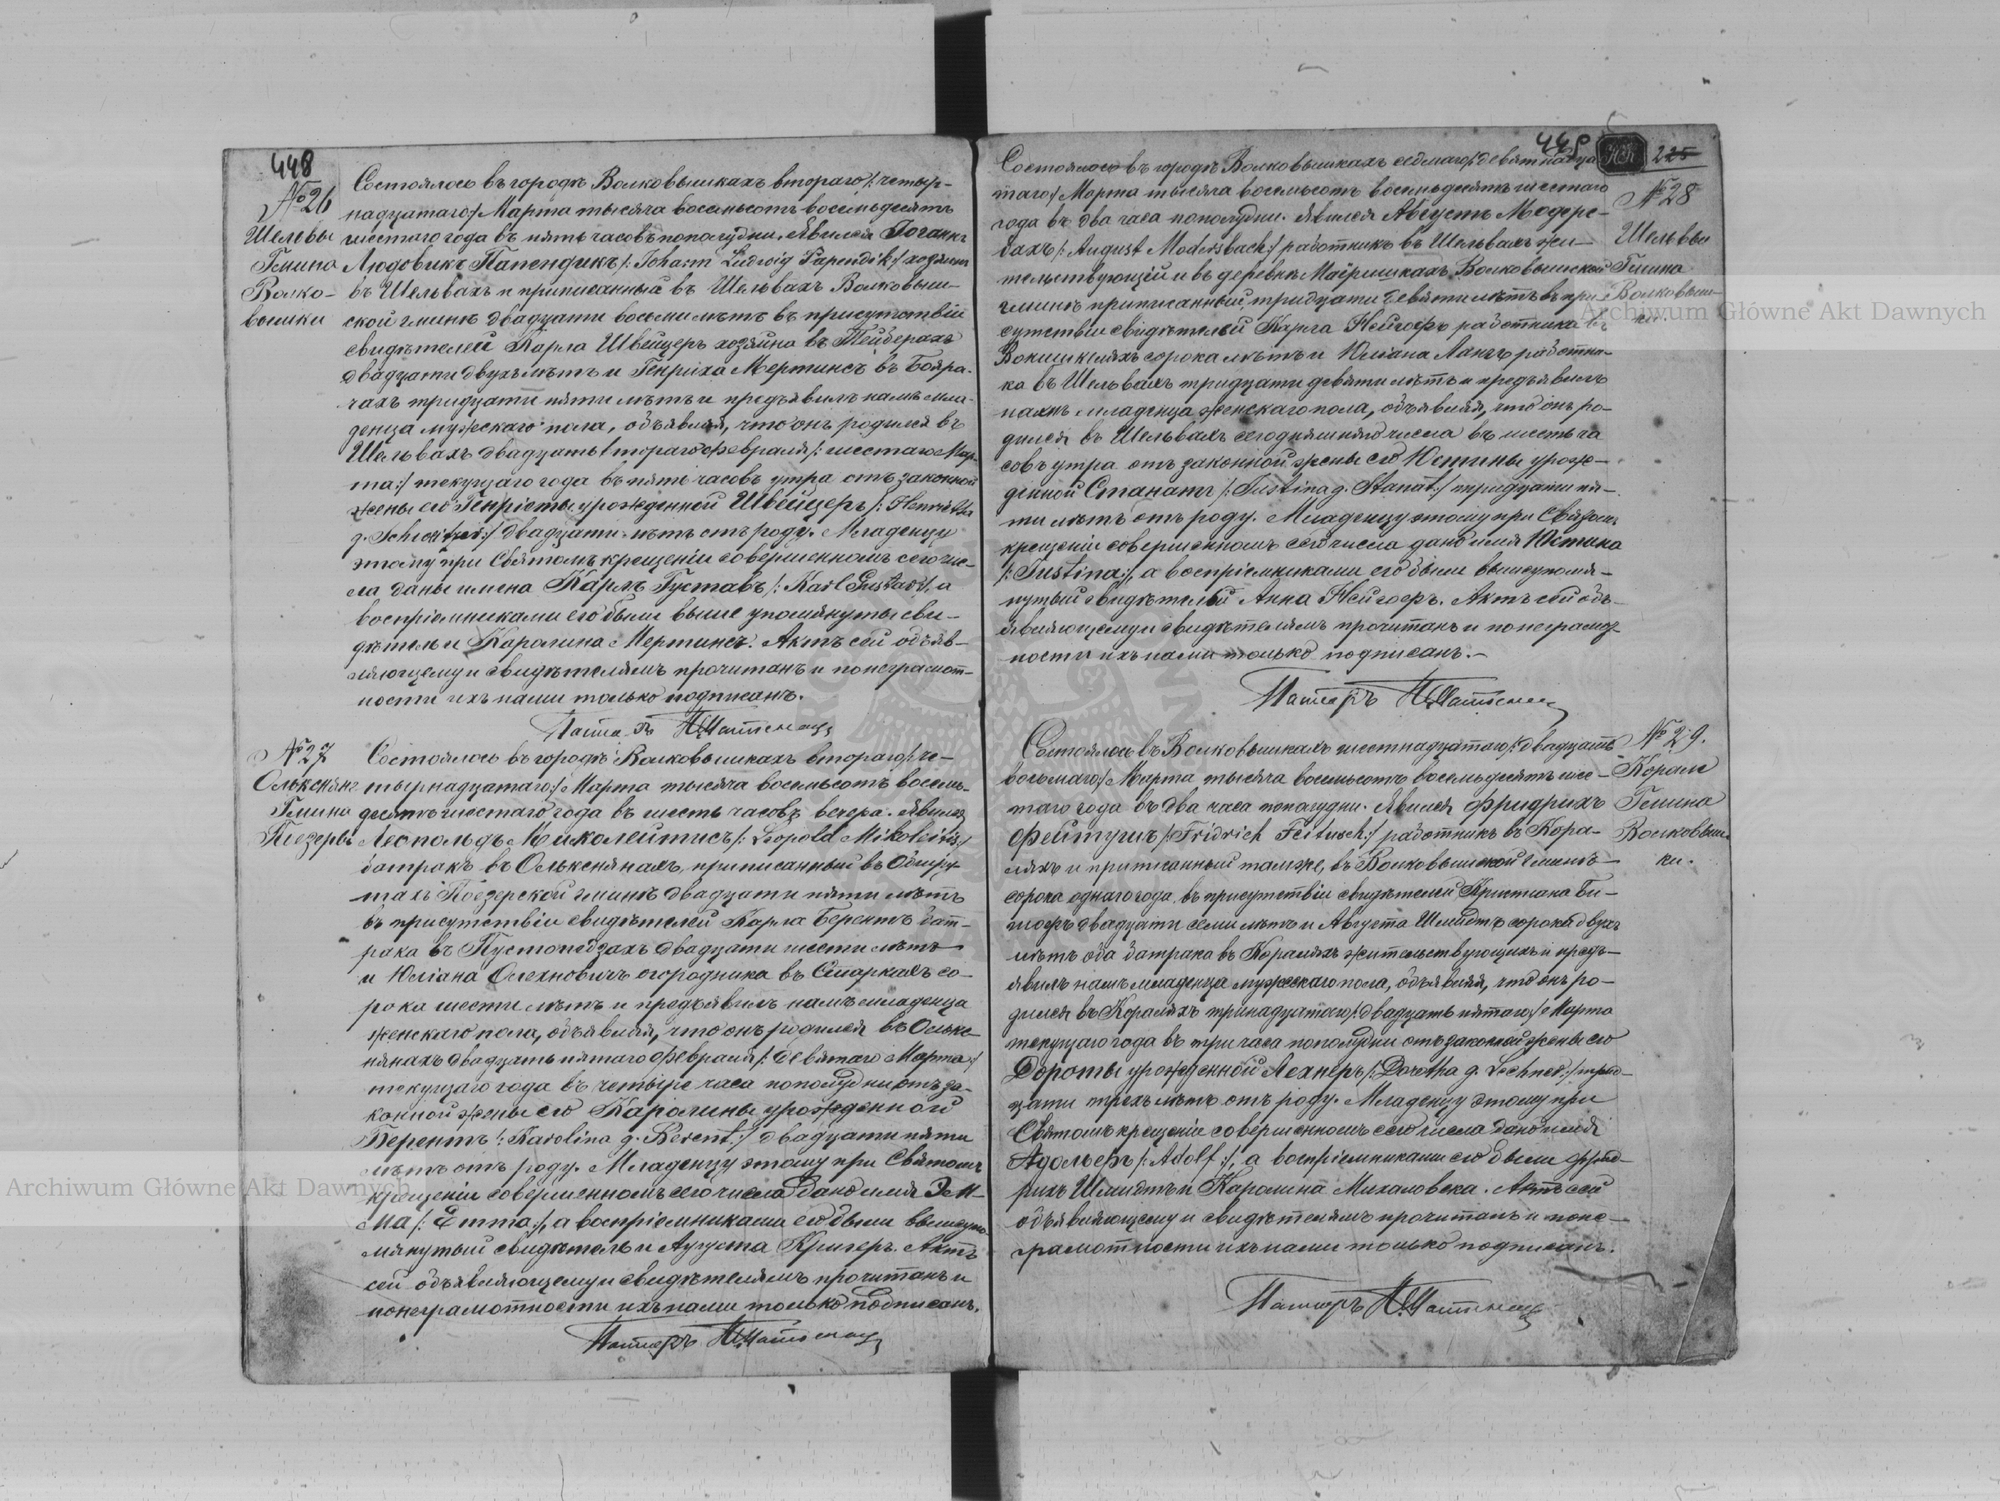 448
№ 26
Шельвы
Гмина
Волко-
вышки
Состоялось въ городѣ Волковышкахъ втораго /: четыр-
надцатаго :/ Марта тысяча восемьсотъ восемьдесятъ
шестаго года въ пять часовъ пополудни. Явился Іоганнъ
Людовикъ Папендикъ /: Johann Ludwig Papendik :/ хозяинъ
въ Шельвахъ и приписанный въ Шельвахъ Волковыш-
ской гминѣ двадцати восьми лѣтъ въ присутствіи
свидѣтелей Карла Швейцеръ хозяина въ
двадцати двухъ лѣтъ и Генриха Мертинсъ въ Бояра-
чахъ тридцати пяти лѣтъ и предъявилъ намъ мла-
денца мужескаго пола, объявляя, что онъ родился въ
Шельвахъ двадцать втораго Февраля /: шестаго Мар-
та :/ текущаго года въ пять часовъ утра отъ законной
жены его Генріеты урожденной Швейцеръ /: Henrietta
g. Schweitzer :/ двадцати лѣтъ отъ роду. Младенцу
этому при Святомъ крещеніи совершенномъ сего чис-
ла даны имена Карлъ Густавъ /: Karl Gustav :/, а
воспріемниками его были выше упомянуты сви-
дѣтель и Каролина Мертинсъ. Актъ сей объяв-
ляющему и свидѣтелямъ прочитанъ и по неграмот-
ности ихъ нами только подписанъ.
Пасторъ
№ 27
Олькеняне
Гмина
Піезерви
Состоялось въ городѣ Волковышкахъ втораго /: че-
тырнадцатаго :/ Марта тысяча восемьсотъ восемь-
десятъ шестаго года въ шесть часовъ вечера. Явился
Леопольдъ Миколейтисъ /: Leopold Mikoleitis :/
батракъ въ Олькенянахъ, приписанный въ Обшру-
тахъ Поезерской гминѣ двадцати пяти лѣтъ
въ присутствіи свидѣтелей Карла Берентъ бат-
рака въ Пустопедзахъ двадцати шести лѣтъ
и Юліана Олехновичъ огородника въ Старкахъ со-
рока шести лѣтъ и предъявилъ намъ младенца
женскаго пола, объявляя, что онъ родился въ Ольке-
нянахъ двадцать пятаго Февраля /: девятаго Марта :/
текущаго года въ четыре часа пополудни отъ за-
конной жены его Каролины урожденной
Берентъ /: Karolina g. Berent :/ двадцати пяти
лѣтъ отъ роду. Младенцу этому при Святомъ
крещеніи совершенномъ сего числа дано имя Эм-
ма /: Emma :/, а воспріемниками его были вышеупо-
мянутый свидѣтель и Аугуста Кригеръ. Актъ
сей объявляющему и свидѣтелямъ прочитанъ и
по неграмотности ихъ нами только подписанъ.
Пасторъ
448
225
№ 28
Шельвы
Гмина
Волковыш-
ки.
Состоялось въ городѣ Волковышкахъ седмаго /: девятнадца-
таго :/ Марта тысяча восемьсотъ восемьдесятъ шестаго
года въ два часа пополудни. Явился Августъ Модерс-
бахъ /: August Modersbach :/ работникъ въ Шельвахъ жи-
тельствующій и въ деревнѣ Майришкахъ Волковышской
гминѣ приписанный тридцати девяти лѣтъ въ при-
сутствіи свидѣтелей Карла Нейгофъ работника въ
Вокишкляхъ сорока лѣтъ и Юліана Лангъ работни-
ка въ Шельвахъ тридцати девяти лѣтъ и предъявилъ
намъ младенца женскаго пола, объявляя, что онъ ро-
дился въ Шельвахъ сегодняшняго числа въ шесть ча
совъ утра отъ законной жены его Юстины урож-
денной Станатъ /: Justina g. Stanat :/ тридцати пя-
ти лѣтъ отъ роду. Младенцу этому при Святомъ
крещеніи совершенномъ сего числа дано имя Юстина
/: Justina :/, а воспріемниками его были вышеупомя-
нутый свидѣтель и Анна Нейгофъ. Актъ сей объ-
являющему и свидѣтелямъ прочитанъ и по неграмот-
ности ихъ нами только подписанъ. —
Пасторъ
№ 29.
Корале
Гмина
Волковыш-
ки.
Состоялось въ Волковышкахъ шестнадцатаго /: двадцать
восьмаго :/ Марта тысяча восемьсотъ восемьдесятъ шес-
таго года въ два часа пополудни. Явился Фридрихъ
Фейтушъ /: Fridrich Feitusch :/ работникъ въ Кора-
ляхъ и приписанный тамже, въ Волковышской гминѣ
сорока однаго года, въ присутствіи свидѣтелей Кристіана Би-
гофъ двадцати семи лѣтъ и Августа Шмидтъ сорока двухъ
лѣтъ оба батрака въ Кораляхъ жительствующихъ и предъ-
явилъ намъ младенца мужескаго пола, объявляя, что онъ ро-
дился въ Кораляхъ тринадцатаго /: двадцать пятаго :/ Марта
текущаго года въ три часа пополудни отъ законной жены его
Дороты урожденной Лехнеръ /: Dorotha g. Lechner :/ трид-
цати трехъ лѣтъ отъ роду. Младенцу этому при
Святомъ крещеніи совершенномъ сего числа дано имя
Адольфъ /: Adolf :/, а воспріемниками его были Фрид-
рихъ Шмидтъ и Каролина Михаловска. Актъ сей
объявляющему и свидѣтелямъ прочитанъ и по не-
грамотности ихъ нами только подписанъ.
Пасторъ
Archiwum Główne Akt Dawnych
Archiwum Główne Akt Dawnych